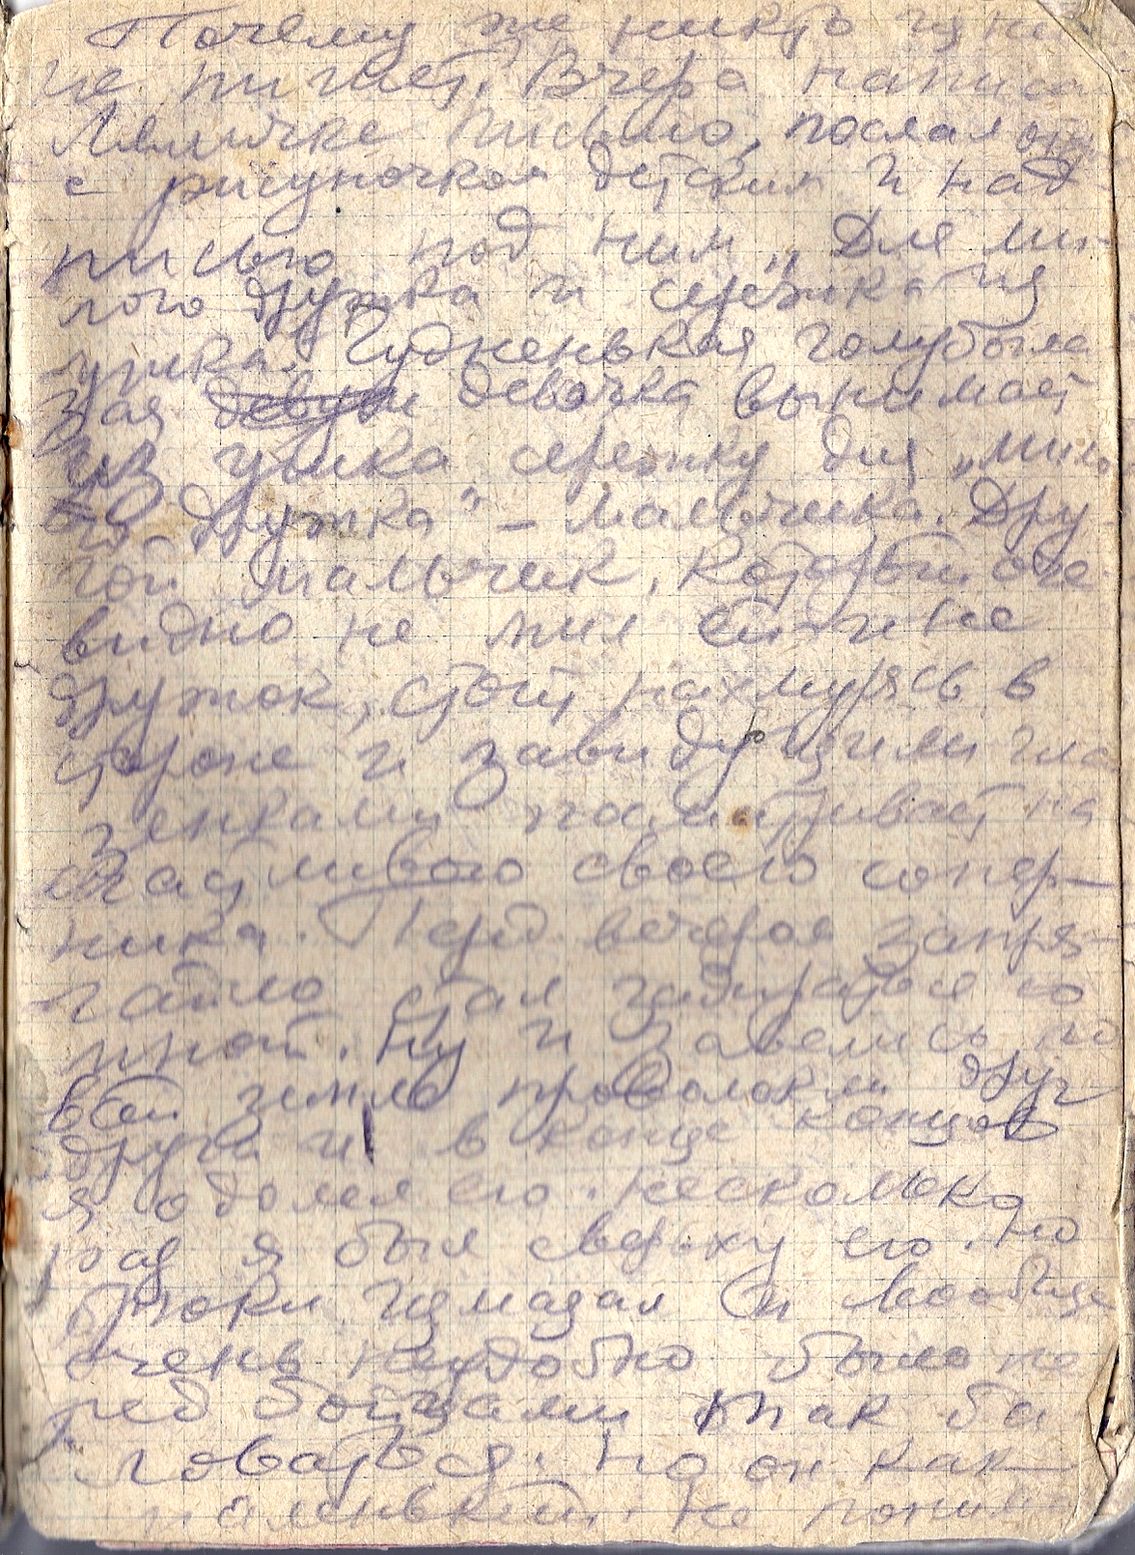 Почему же никто из них
не пишет. Вчера написал
письмо, послал
с рисуночком детским и над
писью под ним „Для ми-
лого дружка и сережка из
ушка. Чудненькая голубогла
зая девочка вынимает
из ушка сережку для „мило
го дружка" – мальчика. Дру
гой мальчик, который оче
видно не мил ей и не
дружок, стоит нахмурясь в
стороне и завидущими гла
зенками посматривает на
счастливого своего сопер-
ника. Перед вечером
стал задираться со
мной. Ну и завелись, по
всей земле проволокли друг
друга и в конце концов
я одолел его. Несколько
раз я был сверьху его. Но
брюки измазал и вообще
очень неудобно было пе
ред бойцами так ба
ловаться. Но он как
маленький. Не понима